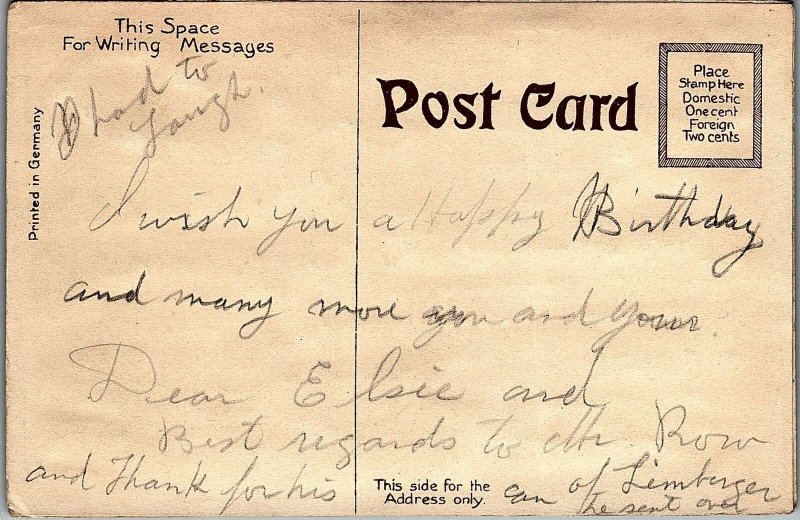 This Space
For Writing Messages
I had to
Laugh.
Printed in Germany
Post Card
Place
Stamp Here
Domestic
One cent
Foreign
Two cents
I wish you a Happy Birthday
and many more you and your
Dear Elsie and
Best regards to Mr. Row
and Thank for his can of Limberger
he sent over
This side for the
Address only.